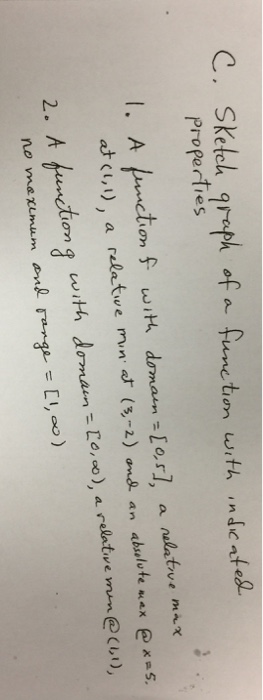 C. Sketch graph of a function with indicated
properties
1. A function f with domain = [0,5], a relative max
at (1,1), a relative min at (3,-2) and an absolute max @ x=5.
2. A function g with domain = [0,∞), a relative min @ (1,1),
no maximum and range = [1,∞)